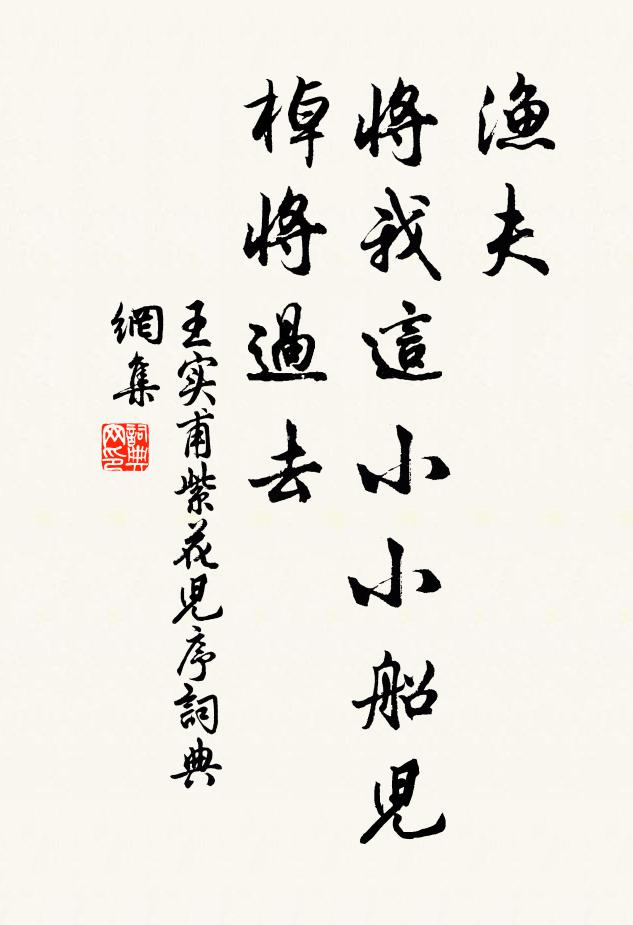 漁夫
將我這小小船兒
棹將過去
王实甫紫花児序詞典
網集
詞典网印